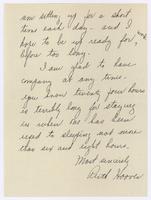 am sitting up for a short
time each day - and I
hope to be up ready for work
before too long.
I am glad to have
company at any time.
you know twenty four hours
is terribly long for staying
in when one has been
used to sleeping not more
than six and eight hours.
Most sincerely
Ruth Hoover